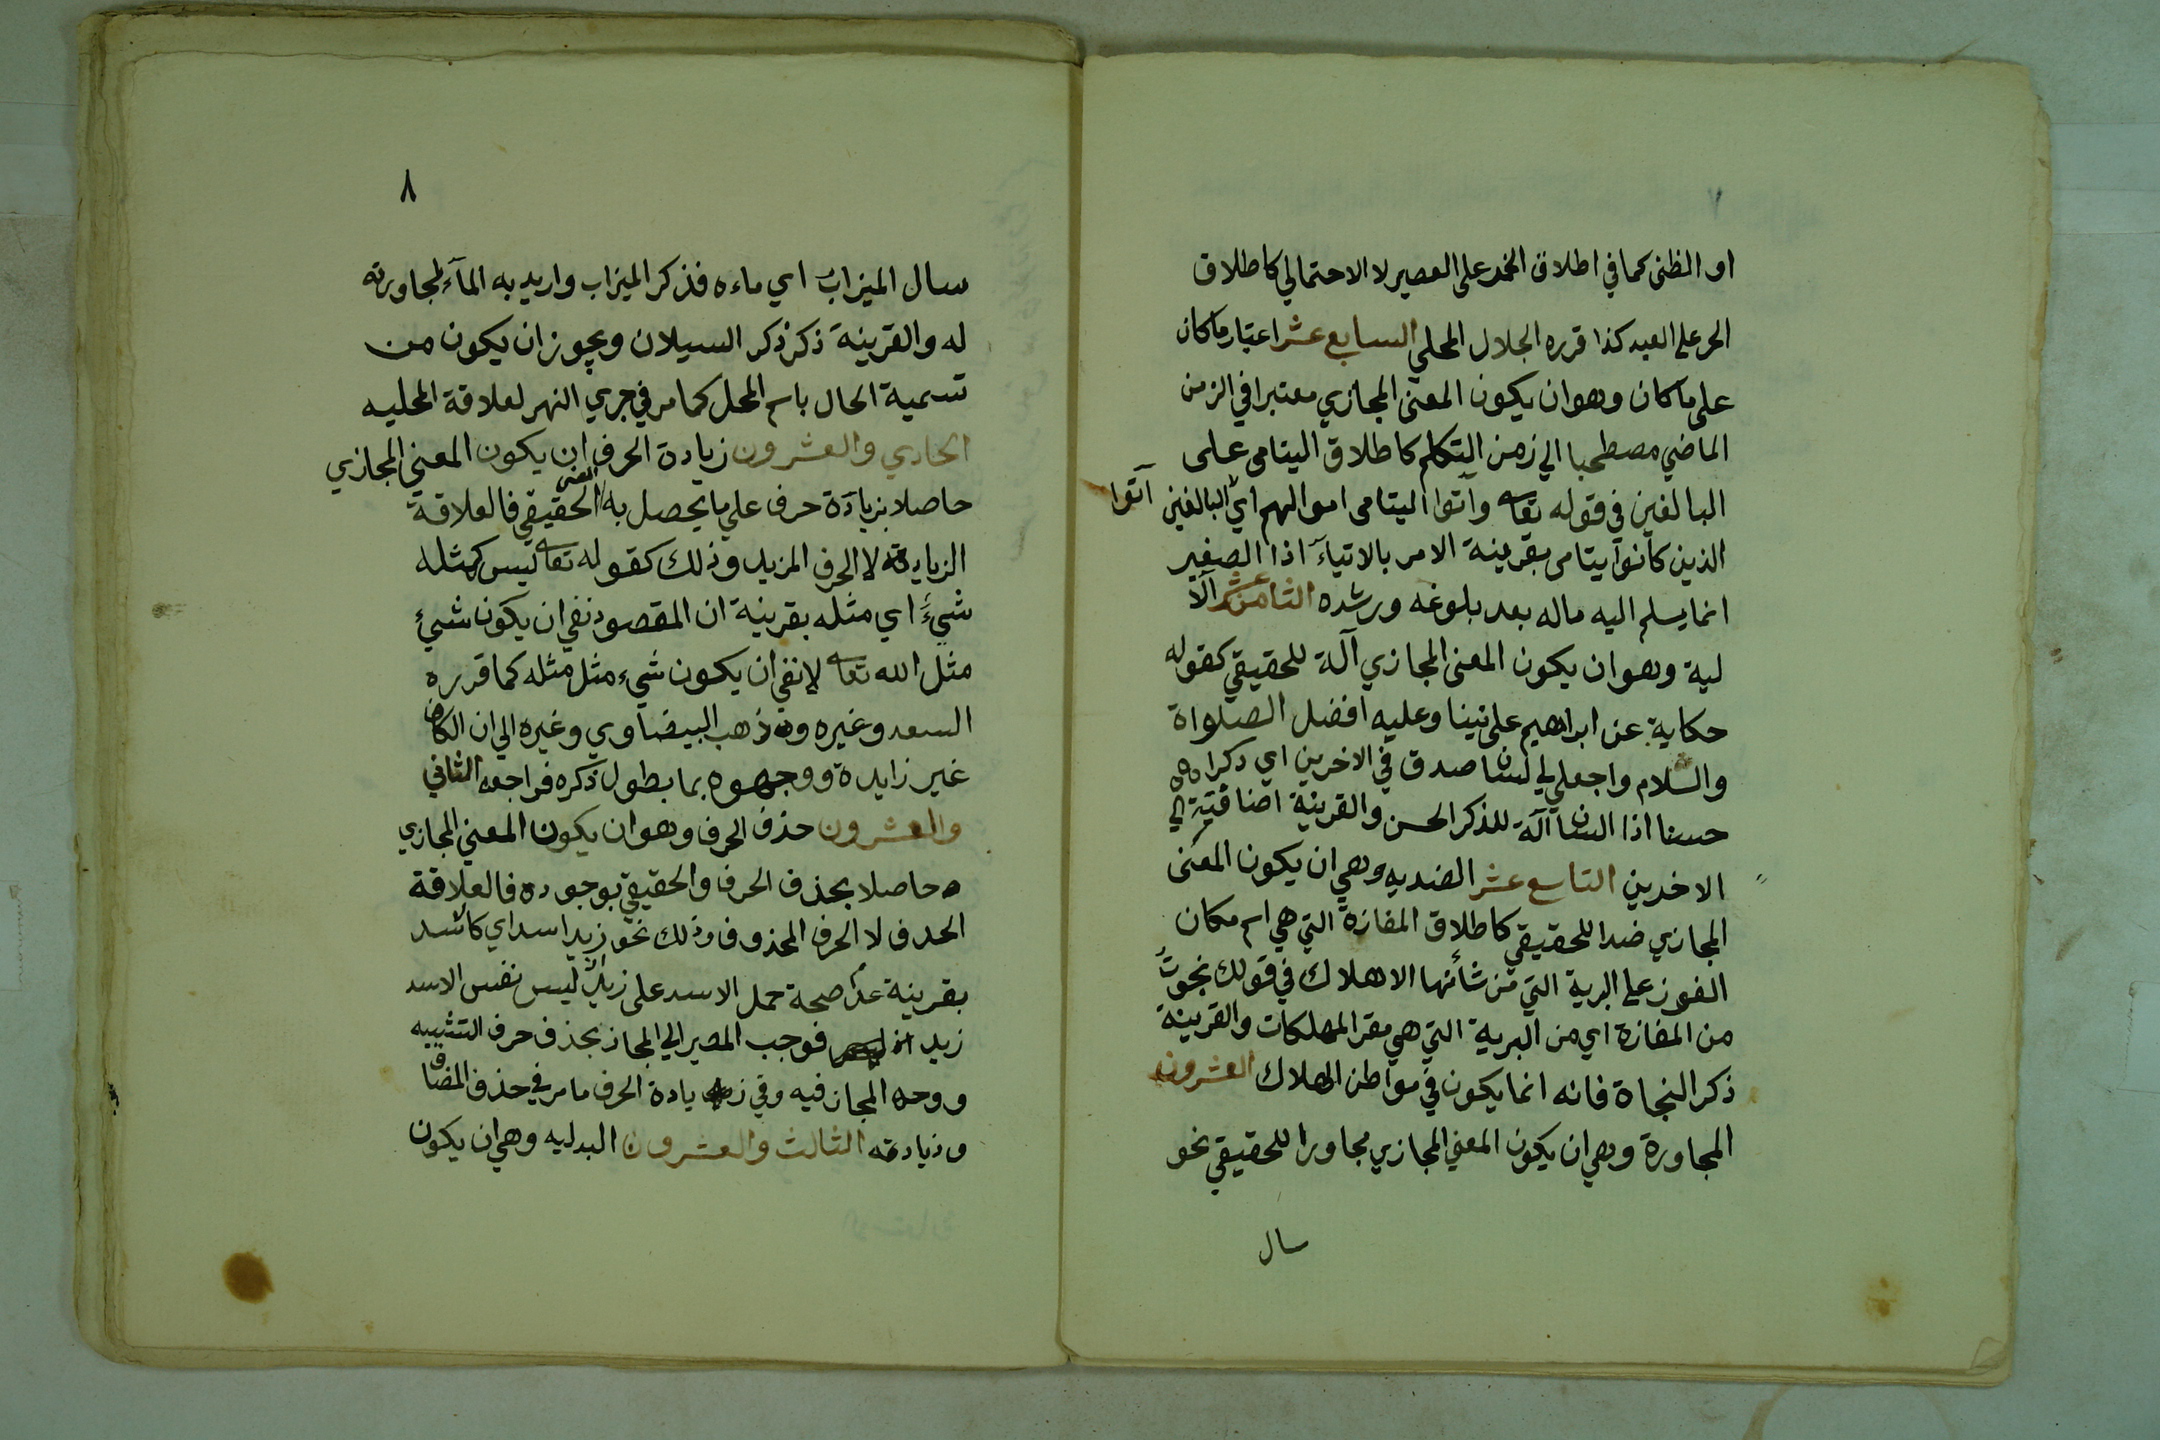 ٧
او الظنى كما في اطلاق الخمر على العصير لا الاحتمالي كاطلاق
الحر على العبد كذا قرره الجلال المحلي السابع عشر اعتبار ما كان
على ما كان وهو ان يكون المعنى المجازي معتبرا في الزمن
الماضي مصطحبا الي زمن التكلم كاطلاق اليتامى على
البالغين في قوله تعا وآتوا اليتامى اموالهم اي البالغين آتوا
الذين كانوا يتامى بقرينة الامر بالايتآء اذا الصغير
انما يسلم اليه ماله بعد بلوغه ورشده الثامن عشر الآ
لية وهو ان يكون المعنى المجازي آلة للحقيقي كقوله
حكاية عن ابراهيم على نبينا وعليه افضل الصلواة
والسلام واجعل لي لسان صدق في الاخرين اي ذكرا
حسنا اذا اللسان آلة للذكر الحسن والقرينة اضافته في
الاخرين التاسع عشر الضديه وهي ان يكون المعنى
المجازي ضدا للحقيقي كاطلاق المفازة التي هي اسم مكان
الفوز على البرية التي من شأنها الاهلاك في قولك نجوت
من المفازة اي من البرية التي هي مقر المهلكات والقرينة
ذكر النجاة فانه انما يكون في مواطن الهلاك العشرون
المجاورة وهي ان يكون المعني المجازي مجاورا للحقيقي نحو
سال
٨
سال الميزاب اي ماءه فذكر الميزاب واريد به المآء لمجاورته
له والقرينة ذكر ذكر السيلان ويجوز ان يكون من
تسمية الحال باسم المحل كما مر في جري النهر لعلاقة المحليه
الحادي والعشرون زيادة الحرف ان يكون المعني المجازي
حاصلا بزيادة حرف علي ما يحصل به المعنى الحقيقي فالعلاقة
الزيادة لا الحرف المزيد وذلك كقوله تعا ليس كمثله
شيء اي مثله بقرينة ان المقصود نفي ان يكون شيء
مثل الله تعا لا نفي ان يكون شيء مثل مثله كما قرره
السعد وغيره وذهب البيضاوي وغيره الي ان الكاف
غير زايدة ووجهوه بما يطول ذكره فراجعه الثاني
والعشرون حذف الحرف وهو ان يكون المعني المجازي
حاصلا بحذف الحرف والحقيقي بوجوده فالعلاقة
الحدف لا الحرف المحذوف وذلك نحو زيد اسد اي كأسد
بقرينة عدم صحة حمل الاسد على زيد اذ ليس نفس الاسد
زيد فوجب المصير الي المجاز بحذف حرف التشبيه
ووجه المجاز فيه وفي زيادة الحرف ما مر في حذف المضاف
وزيادته الثالث والعشرون البدليه وهي ان يكون